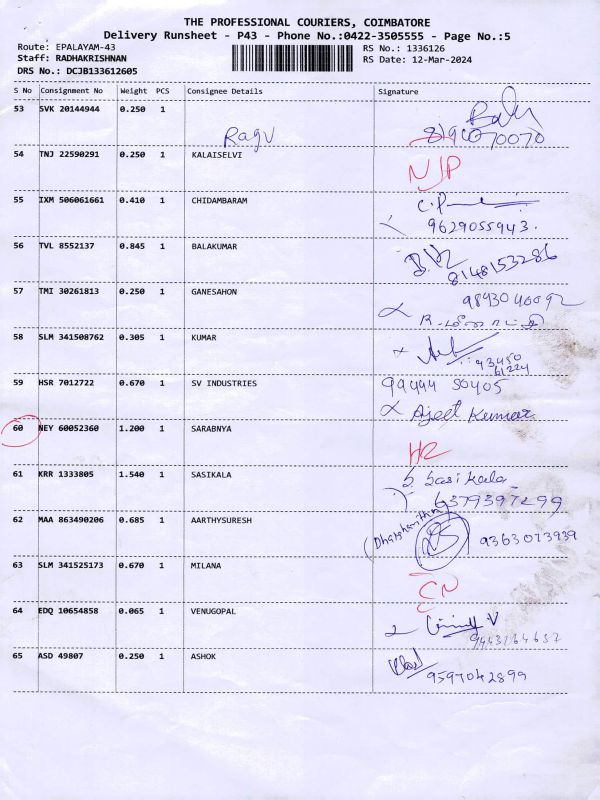 THE PROFESSIONAL COURIERS, COIMBATORE
Delivery Runsheet - P43 - Phone No.:0422-3505555 - Page No.:5
Route: EPALAYAM-43 RS No.: 1336126
Staff: RADHAKRISHNAN RS Date: 12-Mar-2024
DRS No.: DCJB133612605
S No Consignment No Weight PCS Consignee Details Signature
53 SVK 20144944 0.250 1
Ragu
54 TNJ 22590291 0.250 1 KALAISELVI
55 IXM 506061661 0.410 1 CHIDAMBARAM
9629055943.
56 TVL 8552137 0.845 1 BALAKUMAR
8148153286
57 TMI 30261813 0.250 1 GANESAHON
58 SLM 341508762 0.305 1 KUMAR
93450
61224
59 HSR 7012722 0.670 1 SV INDUSTRIES 99444 50405
Ajeet Kumar
60 NEY 60052360 1.200 1 SARABNYA
61 KRR 1333805 1.540 1 SASIKALA S. Sasikala
6379397299
62 MAA 863490206 0.685 1 AARTHYSURESH 9363073939
63 SLM 341525173 0.670 1 MILANA
CN
64 EDQ 10654858 0.065 1 VENUGOPAL
65 ASD 49807 0.250 1 ASHOK
9597042899